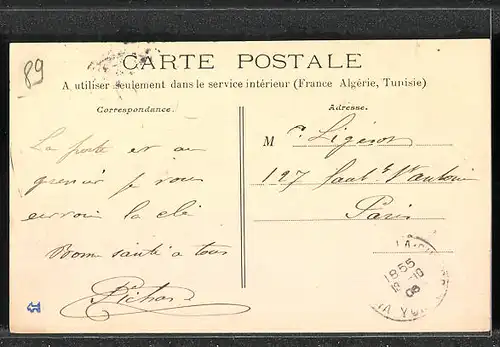 89
CARTE POSTALE
A utiliser seulement dans le service intérieur (France Algérie, Tunisie)
Correspondance.
Adresse.
La poste est au
grenier je vous
enverrai la clé
Bonne santé a tous
Pichard
M r. Ligérot
127 faub. St Antoine
Paris
18 55
08